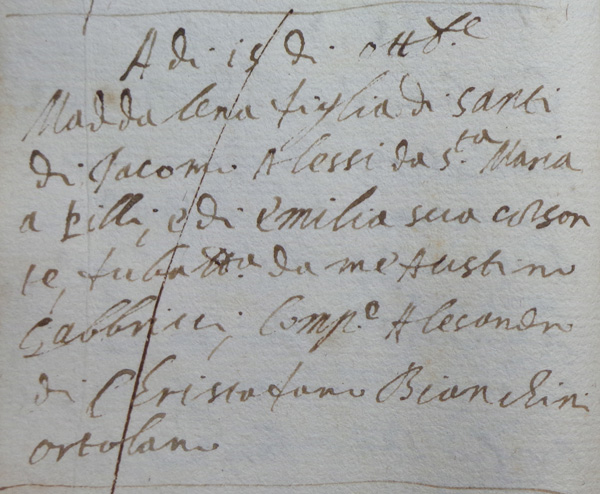 A di 15 di ott.e
Madda lena figlia di santi
di Jacomo Alessi da s.ta Maria
a Pilli, e di emilia sua colson
te, fu batt.a da me Austino
Gabbrieli, Comp.e Alesandro
di Christofano Bianchini
ortolano